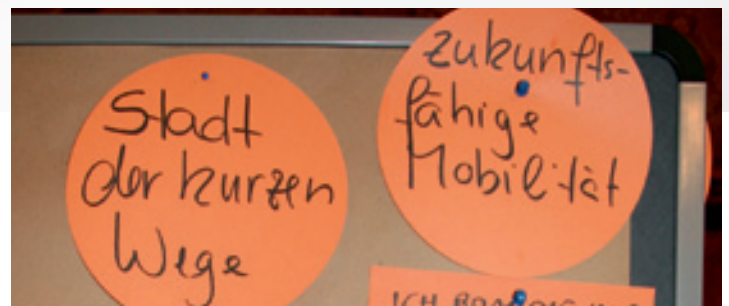 Stadt
der kurzen
Wege
zukunfts-
fähige
Mobilität
ICH